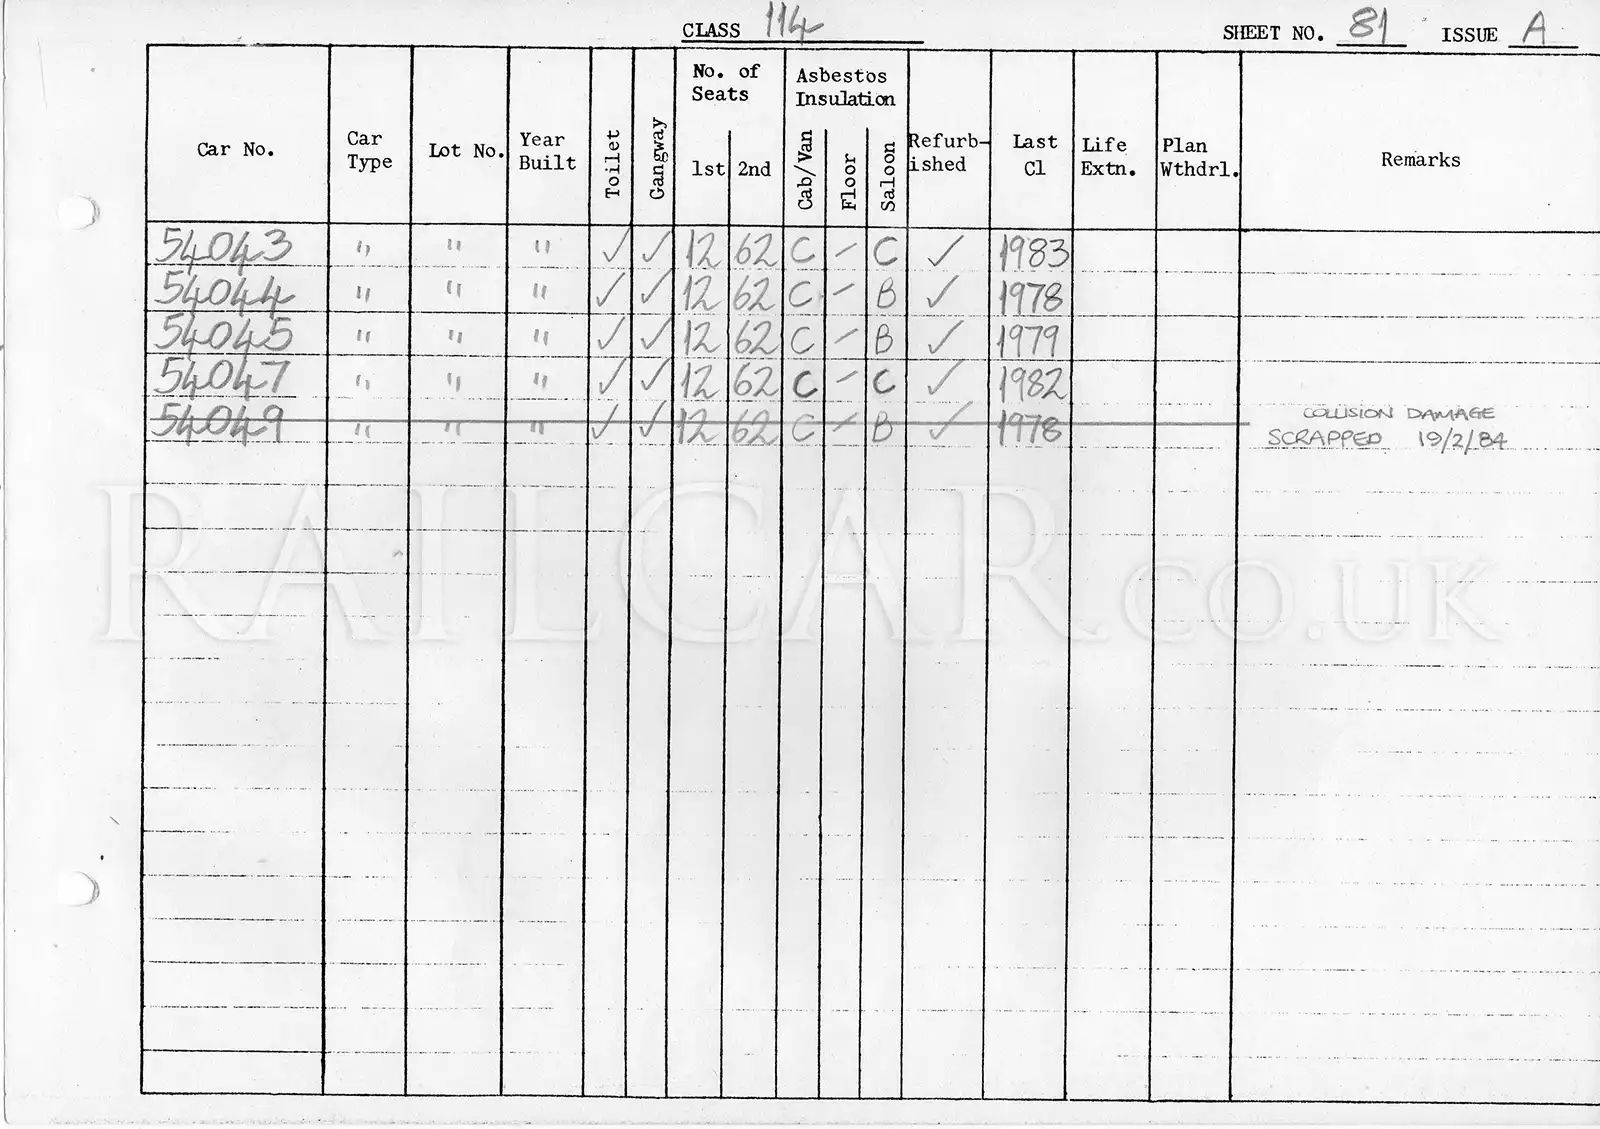 CLASS 114 SHEET NO. 81 ISSUE A
Car No. Car Type Lot No. Year Built Toilet Gangway No. of Seats 1st 2nd Asbestos Insulation Cab/Van Floor Saloon Refurb-ished Last Cl Life Extn. Plan Wthdrl. Remarks
54043 " " " ✓ ✓ 12 62 C - C ✓ 1983
54044 " " " ✓ ✓ 12 62 C - B ✓ 1978
54045 " " " ✓ ✓ 12 62 C - B ✓ 1979
54047 " " " ✓ ✓ 12 62 C - C ✓ 1982
54049 " " " ✓ ✓ 12 62 C - B ✓ 1978 COLLISION DAMAGE
SCRAPPED 19/2/84
RAILCAR.CO.UK